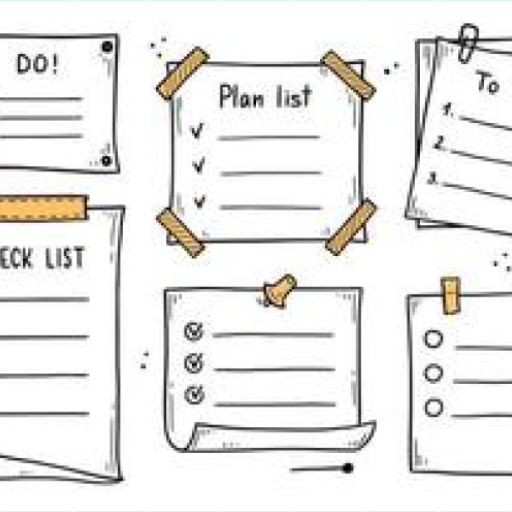 DO!
Plan list
To
1.
2.
3.
ECK LIST